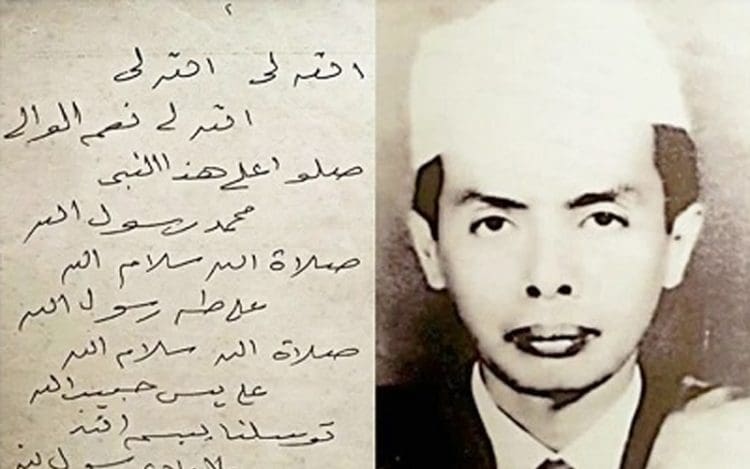 ٢
الله لى الله لى
الله لي نعم الوالي
صلوا على هذا النبى
محمد رسول الله
صلاة الله سلام الله
على طه رسول الله
صلاة الله سلام الله
على يس حبيب الله
توسلنا ببسم الله
رسول الله